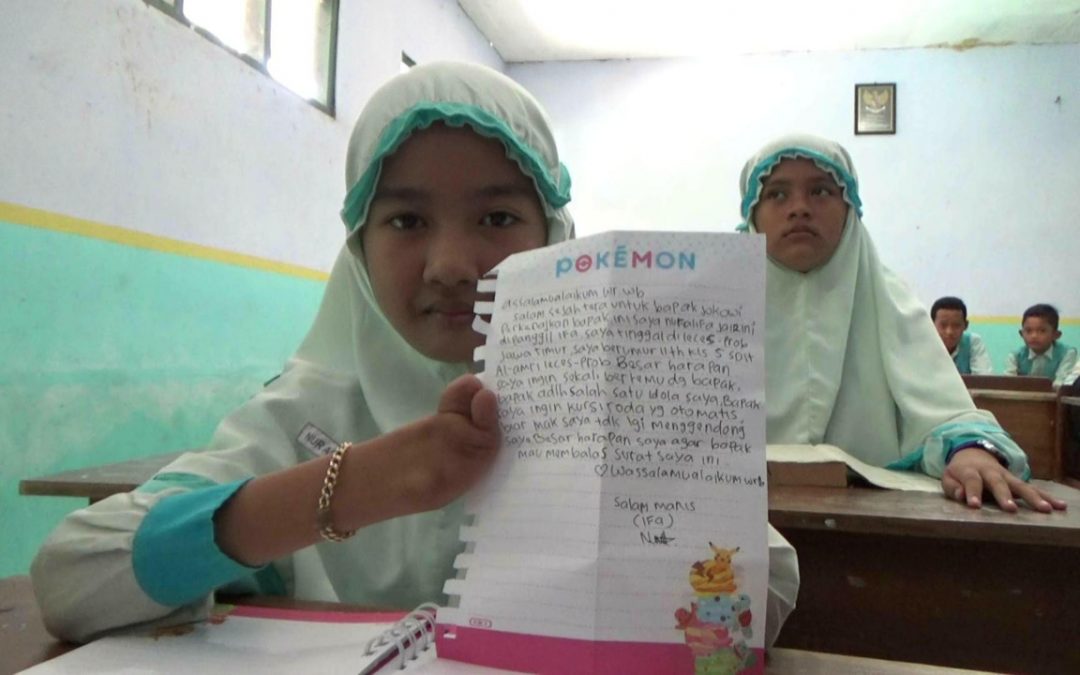 POKÉMON
assalamualaikum wr.wb
salam sejahtera untuk bapak jokowi
perkenalkan bapak ini saya
dipanggil ifa. saya tinggal di leces-prob
jawa timur. saya berumur 11 th kls 5 SDIT
Al-amri leces-prob. Besar harapan
saya ingin sekali bertemu dg bapak,
bapak adlh salah satu idola saya. Bapak
saya ingin kursi roda yg otomatis,
biar mak saya tdk lgi menggendong
saya. Besar harapan saya agar bapak
mau membalas surat saya ini
wassalamualaikum wr
salam manis
(IFa)
NUR